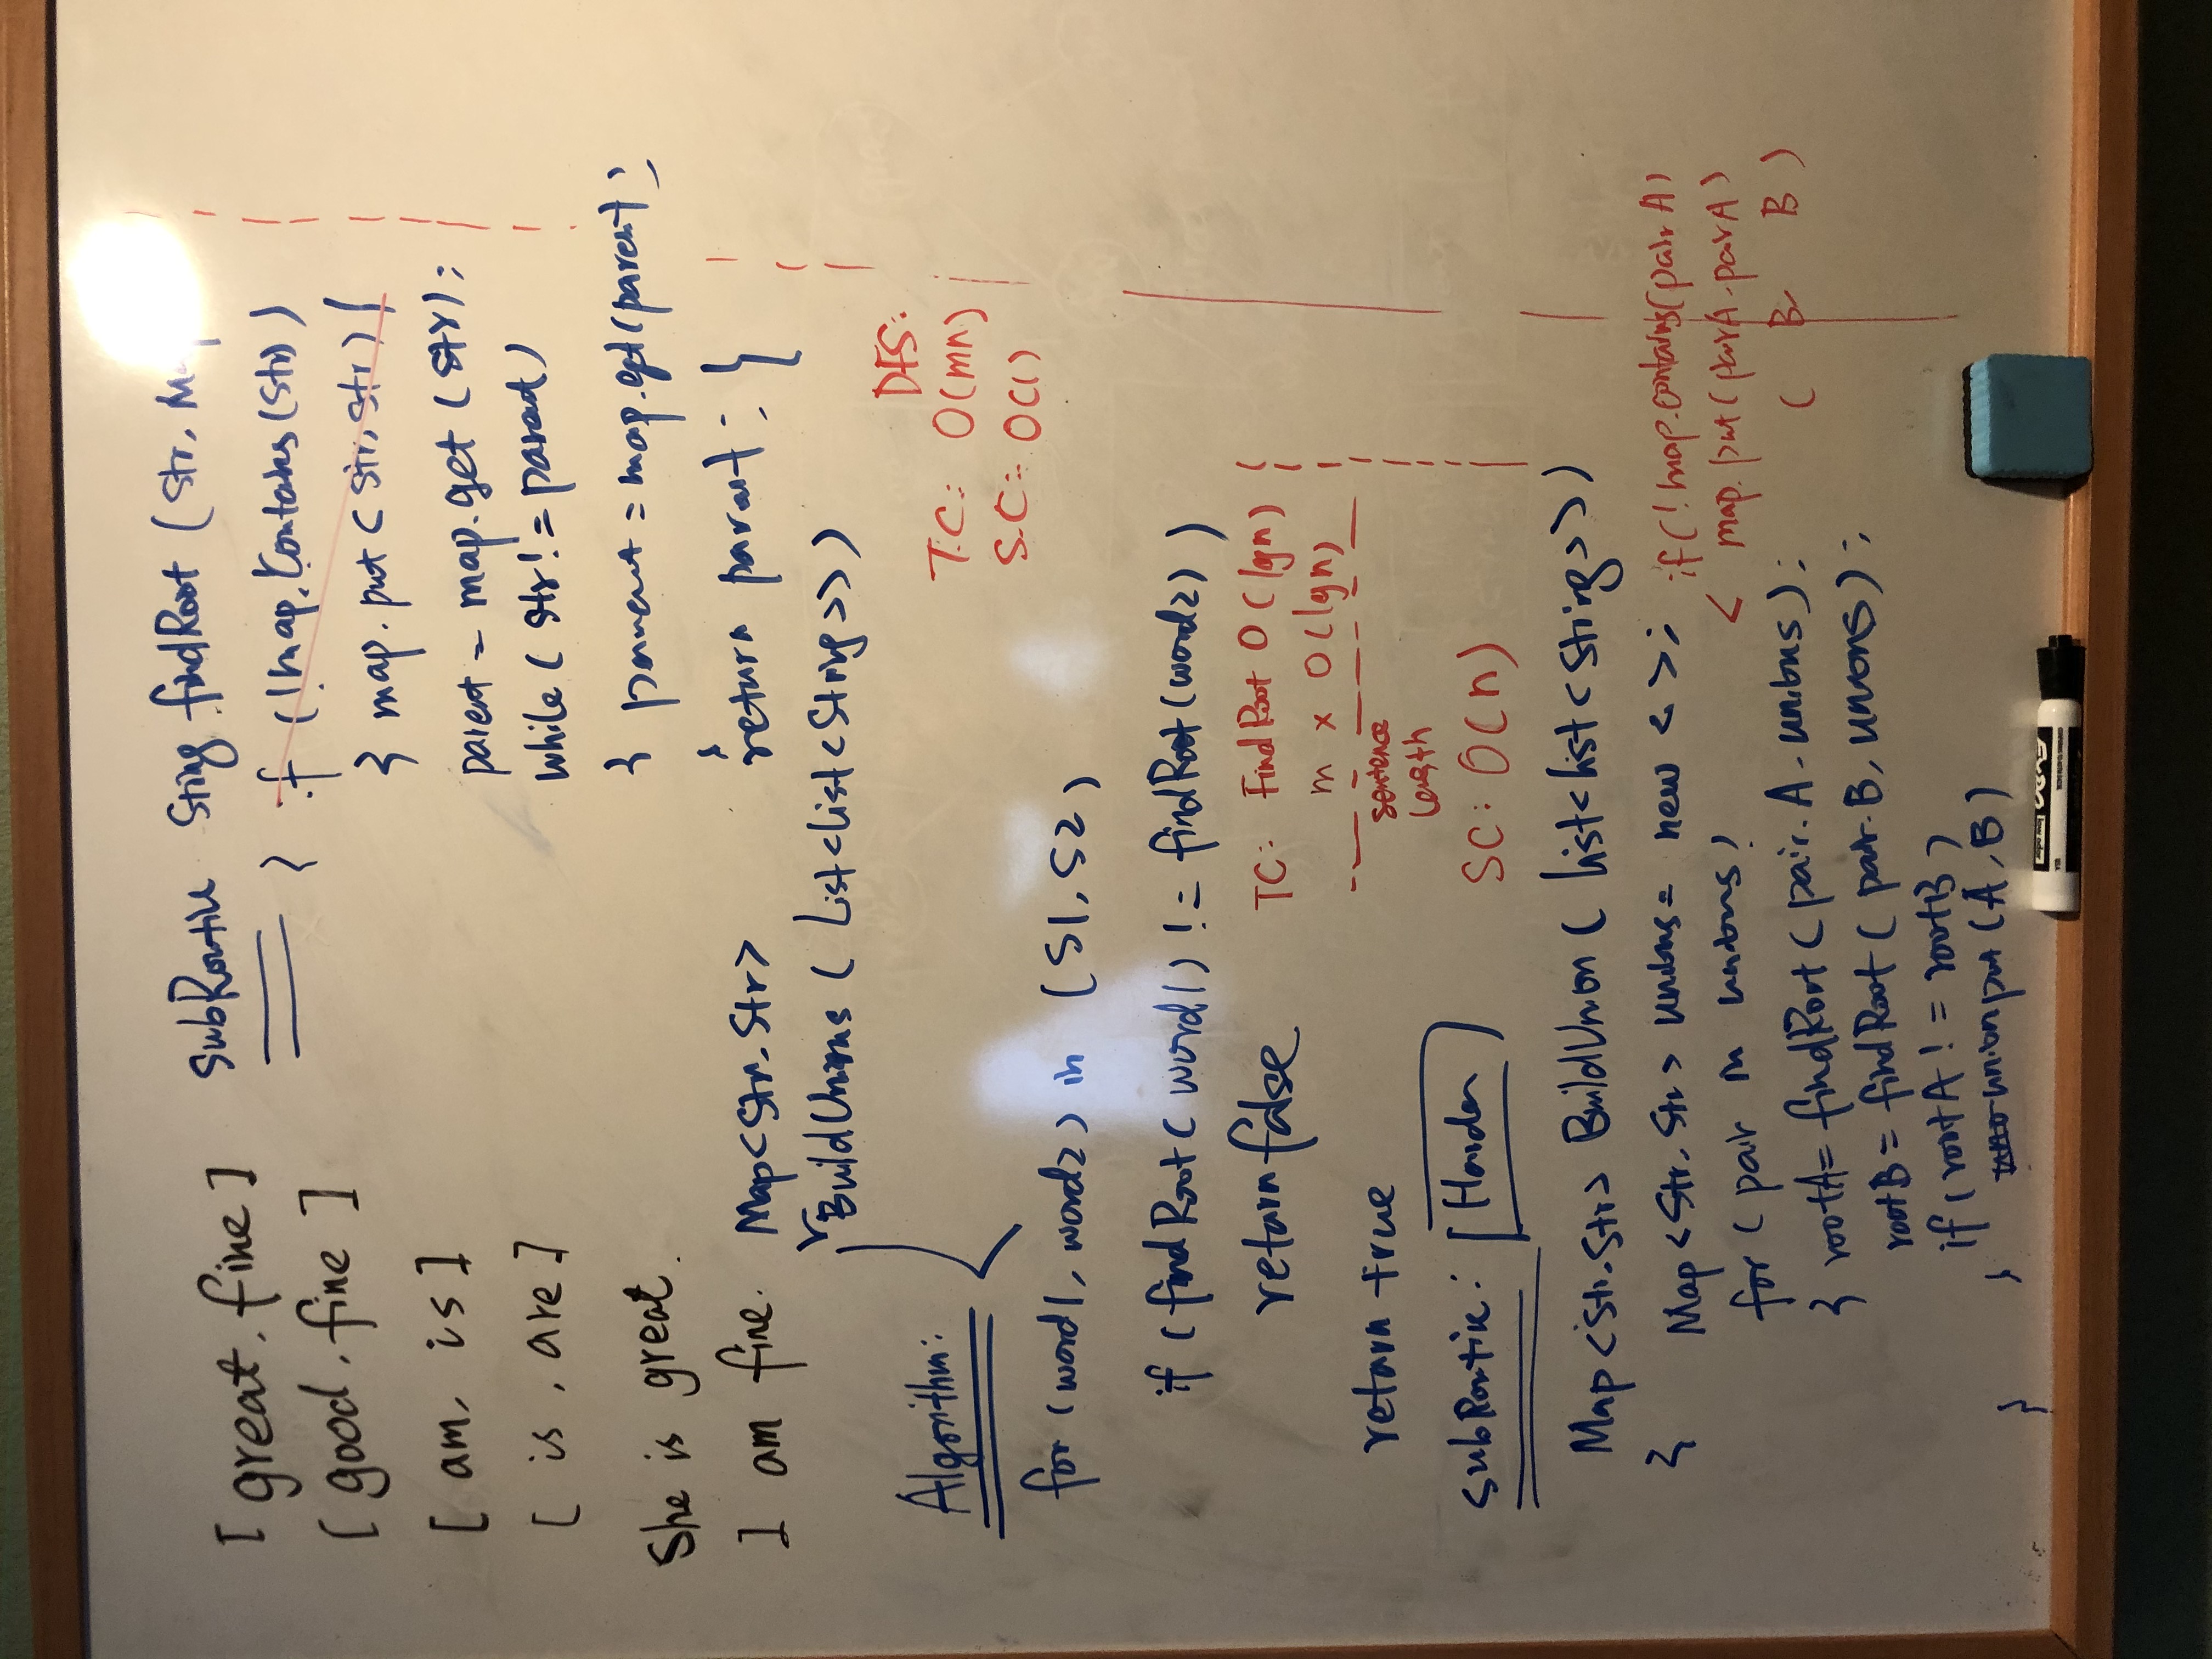 [ great, fine ]
[ good, fine ]
[ am, is ]
[ is, are ]
She is great.
I am fine.
SubRoutine String findRoot ( Str, Ma
{ if ( ! map. Contains (Str) )
{ map. put ( str, str ) }
parent = map.get ( str ) ;
while ( str != parent )
{ parent = map.get (parent) ;
}
return parent ; }
Map<Str, Str>
BuildUnions ( List<List<String>> )
Algorithm:
for (word1, word2) in (S1, S2)
if ( findRoot ( word1) != findRoot (word2) )
return false
return true
DFS:
T.C: O(mn)
S.C: O(1)
TC: Find Root O ( lgn )
m x O ( lgn )
sentence
length
SC: O( n )
SubRoutine: [ Harder ]
Map <Str, Str> BuildUnion ( List< List < String >> )
{ Map < Str, Str > unions = new < > ;
for ( pair in unions )
{ rootA = findRoot ( pair. A, unions ) ;
rootB = findRoot ( pair. B, unions ) ;
if ( rootA != rootB )
union put (A, B)
}
}
if ( ! map. contains (pair A)
< map. put ( pair A, pair A )
( B B )
EXPO
low odor